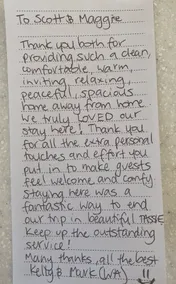 To Scott & Maggie
Thank you both for
providing such a clean,
comfortable, warm,
inviting, relaxing,
peaceful, spacious
home away from home.
We truly LOVED our
stay here! Thank you
for all the extra personal
touches and effort you
put in to make guests
feel welcome and comfy
Staying here was a
fantastic way to end
our trip in beautiful TASSIE.
Keep up the outstanding
service!
Many thanks, all the best
Kelly & Mark (WA)